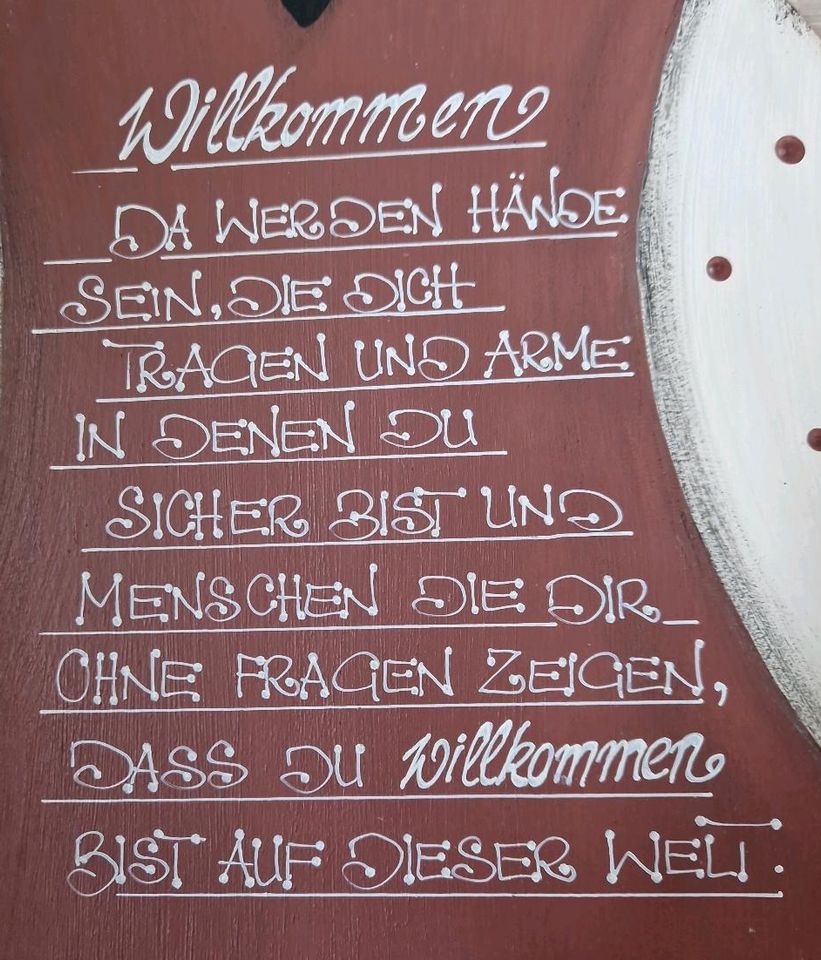 Willkommen
DA WERDEN HÄNDE
SEIN, DIE DICH
TRAGEN UND ARME
IN DENEN DU
SICHER BIST UND
MENSCHEN DIE DIR
OHNE FRAGEN ZEIGEN,
DASS DU willkommen
BIST AUF DIESER WELT.